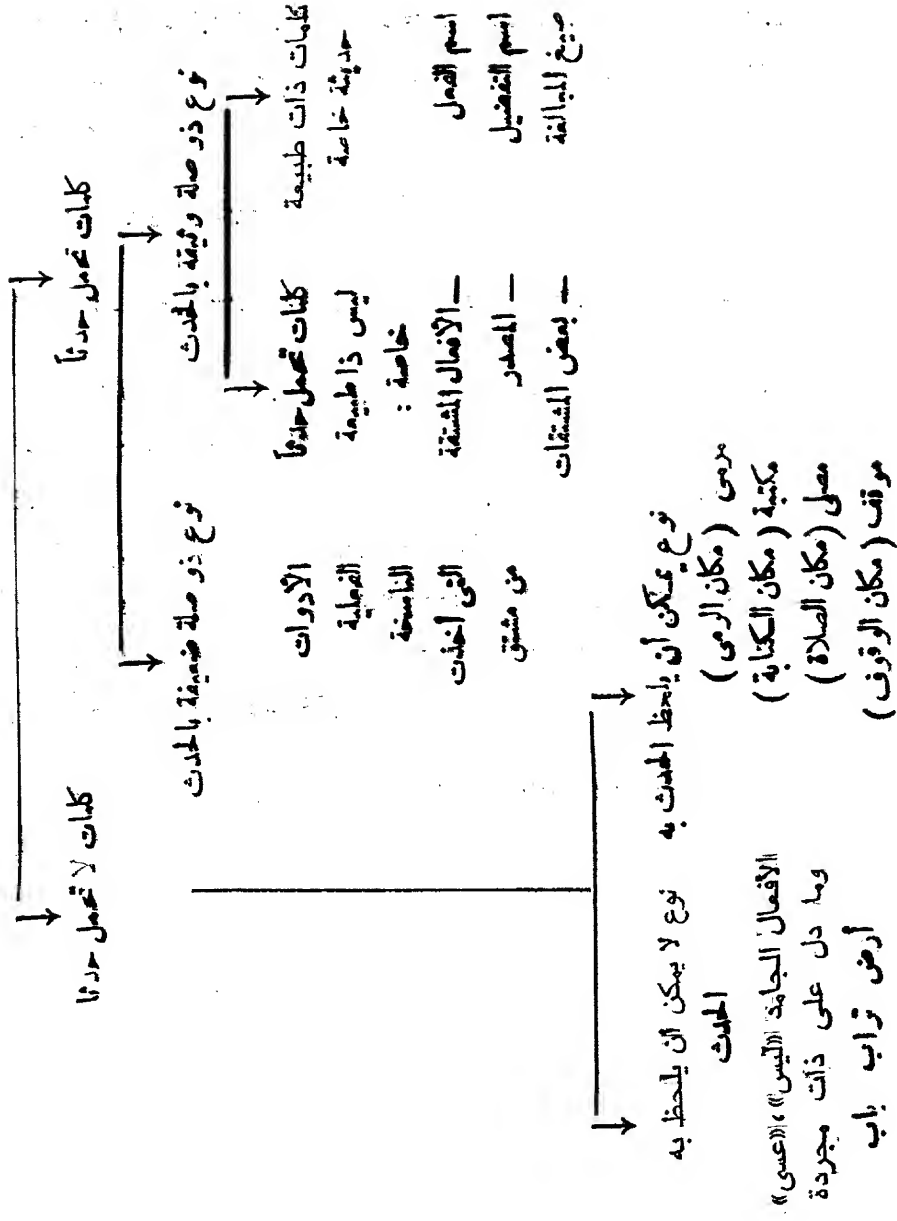 كلمات تحمل حدثاً
كلمات لا تحمل حدثاً
نوع ذو صلة وثيقة بالحدث
نوع ذو صلة ضعيفة بالحدث
كلمات ذات طبيعة
حدثية خاصة
اسم الفعل
اسم التفضيل
صيغ المبالغة
كلمات تحمل حدثاً
ليس ذا طبيعة
خاصة :
— الأفعال المشتقة
— المصدر
— بعض المشتقات
الأدوات
الفعلية
الناسخة
التى أخذت
من مشتق
نوع يمكن أن يلحظ الحدث به
مرمى ( مكان الرمى )
مكتبة ( مكان الكتابة )
مصلى ( مكان الصلاة )
موقف ( مكان الوقوف )
نوع لا يمكن أن يلحظ به
الحدث
الأفعال الجامدة «ليس»، «عسى»
وما دل على ذات مجردة
أرض تراب باب